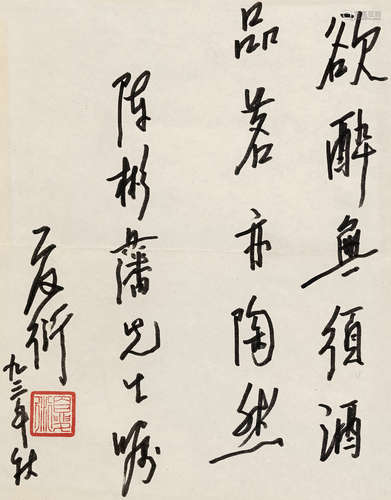 欲醉無須酒
品茗亦陶然
陈彬藩先生嘱
夏衍
九三年秋